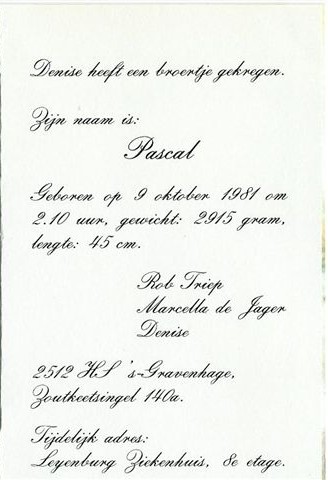 Denise heeft een broertje gekregen.
Zijn naam is:
Pascal
Geboren op 9 oktober 1981 om
2.10 uur, gewicht: 2915 gram,
lengte: 45 cm.
Rob Triep
Marcella de Jager
Denise
2512 HS 's-Gravenhage,
Zoutkeetsingel 140a.
Tijdelijk adres:
Leyenburg Ziekenhuis, 8e etage.